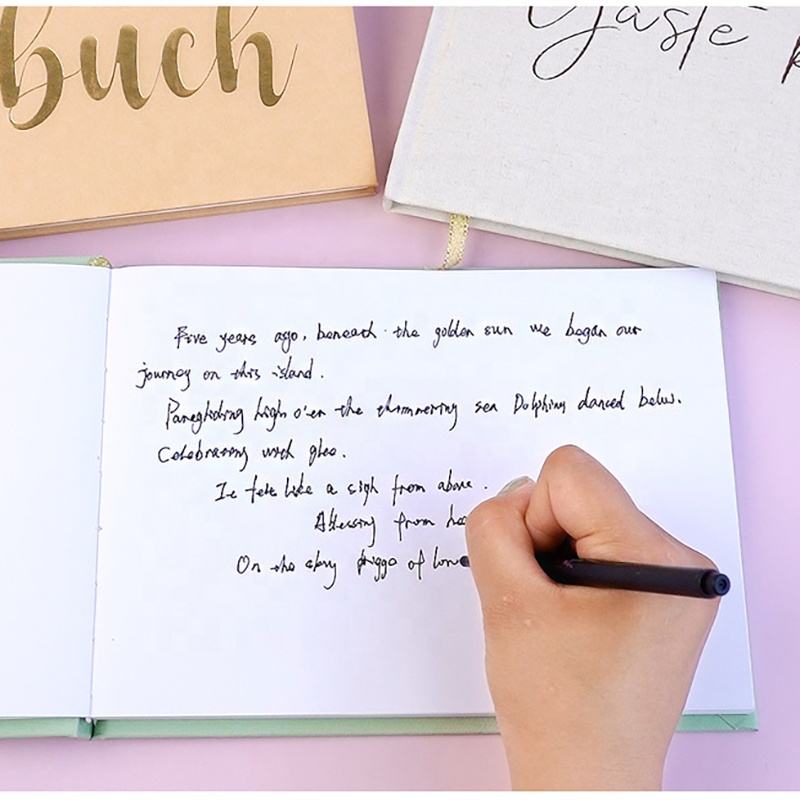 buch
Gäste
Five years ago, beneath the golden sun we began our
journey on this island.
Paragliding high o'er the shimmering sea Dolphins danced below.
Celebrating with glee.
It felt like a sigh from above.
A blessing from
On the of